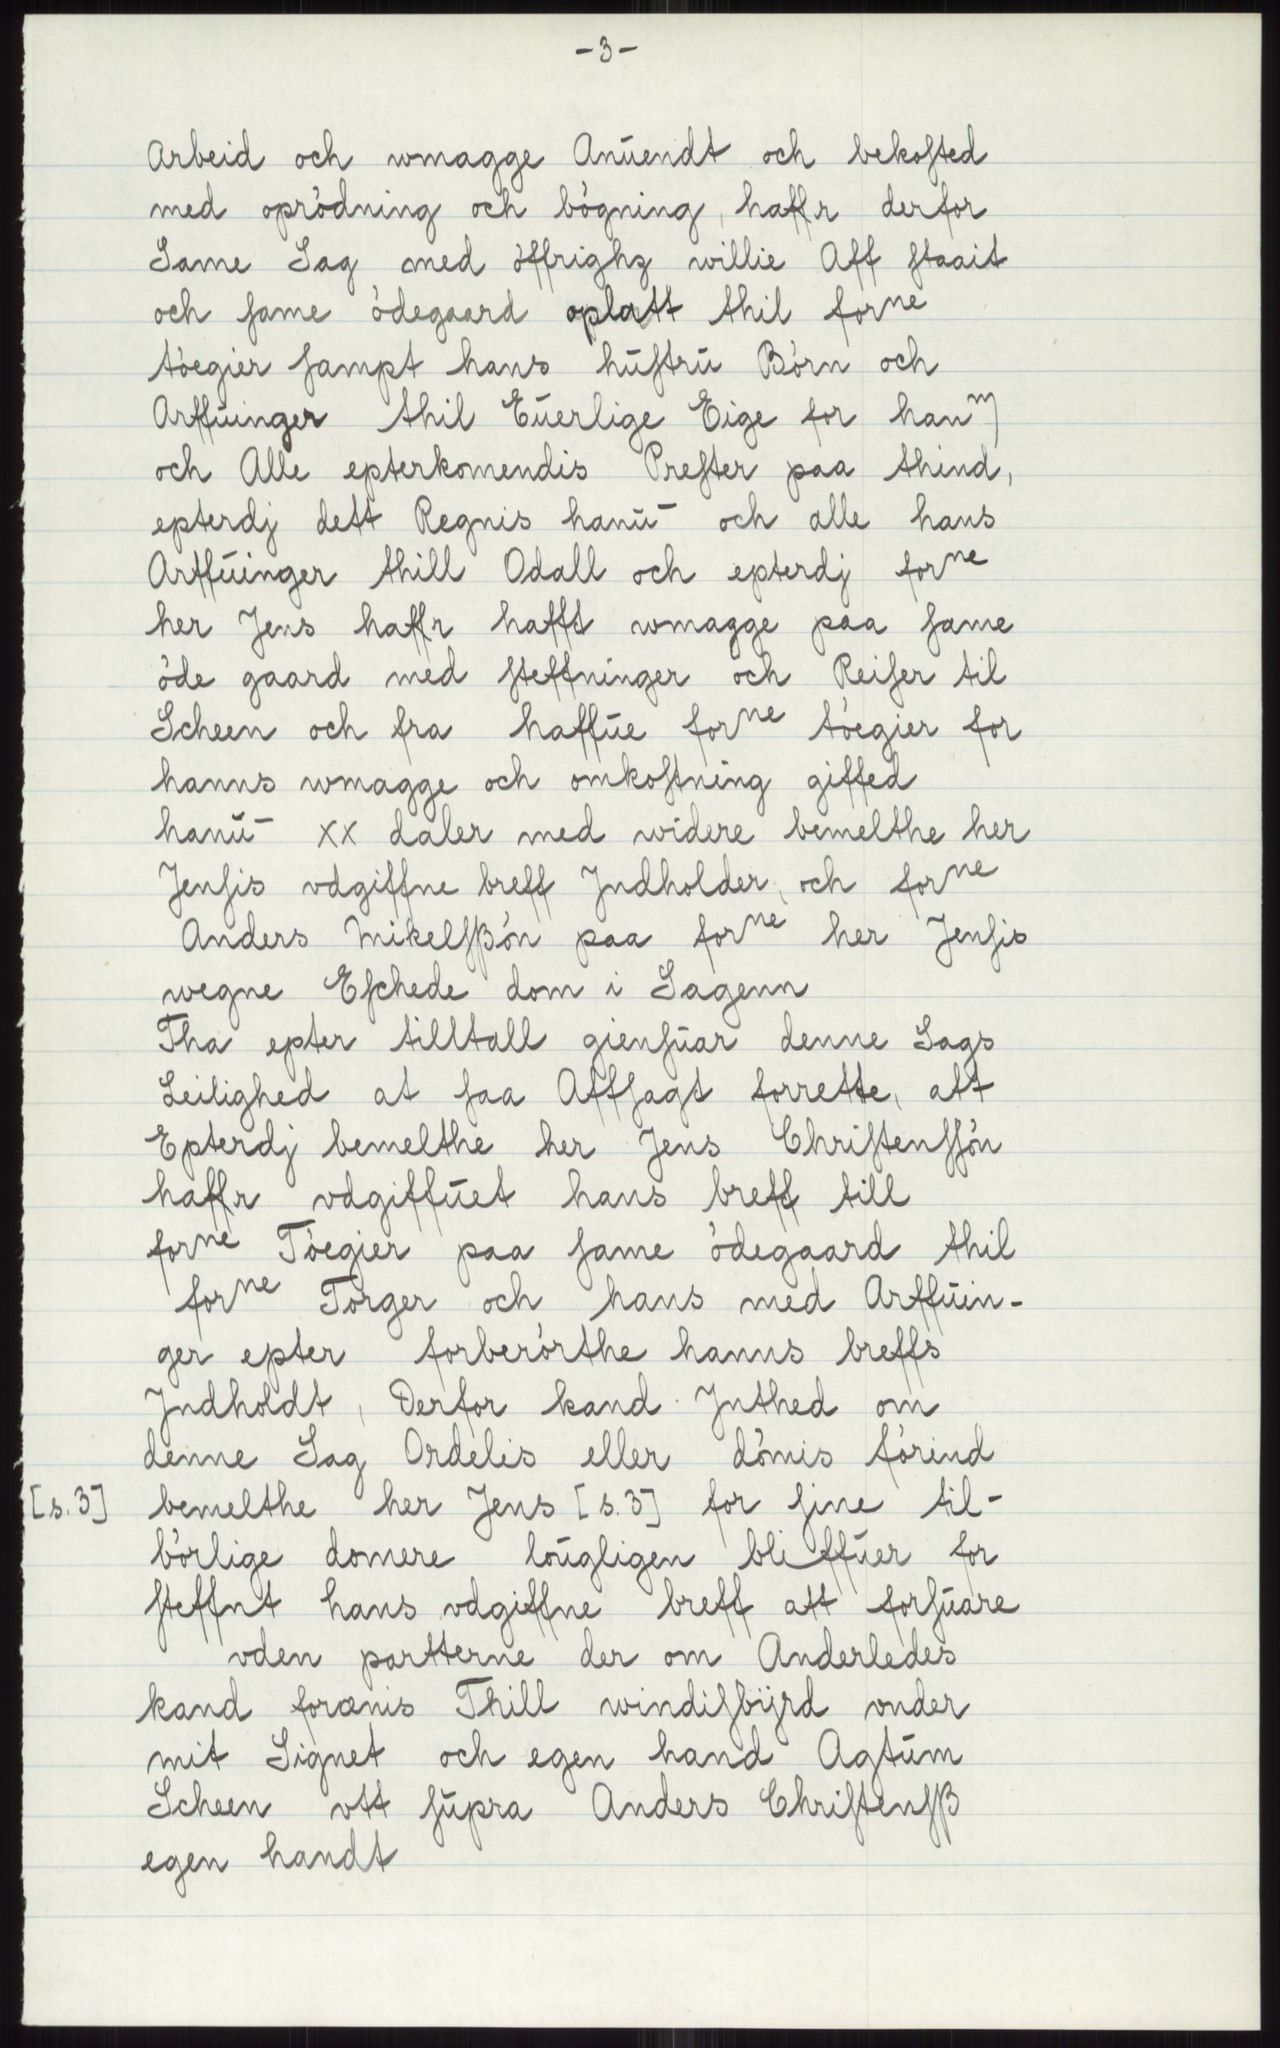 -3-
Arbeid och wmagge Anŭendt och bekosted
med oprödning och bögning, haffr derfor
Same Sag med öffrighz willie Aff staait
och same ödegaard oplatt thil forne
töegier sampt hans hŭstrŭ Börn och
Arffŭinger thil Eŭerlige Eige for hanm
och Alle epterkomendis Prester paa thind,
epterdj dett Regnis hanŭ- och alle hans
Arffŭinger thill Odall och epterdj forne
her Jens haffr hafft wmagge paa same
öde gaard med steffninger och Reiser til
Scheen och fra haffŭe forne töegier for
hanns wmagge och omkostning giffed
hanŭ- xx daler med widere bemelthe her
Jensis vdgiffne breff Jndholder, och forne
Anders Mikelsßön paa forne her Jensis
wegne Eschede dom i Sagenn
Tha epter tilltall giensŭar denne Sags
Leilighed at saa Affsagt forrette, att
Epterdj bemelthe her Jens Christenssön
haffr vdgiffŭet hans breff till
forne Töegier paa same ödegaard thil
forne Törger och hans med Arffŭin-
ger epter forberörthe hanns breffs
Jndholdt, Derfor kand Jnthed om
denne Sag Ordelis eller dömis förind
[s. 3] bemelthe her Jens [s. 3] for sine til-
börlige domere loŭgligen bliffŭer for
steffnt hans vdgiffne breff att forsŭare
vden partterne der om Anderledes
kand forænis Thill windisbÿrd vnder
mit Signet och egen hand Agtŭm
Scheen vtt sŭpra Anders Christensß
egen handt